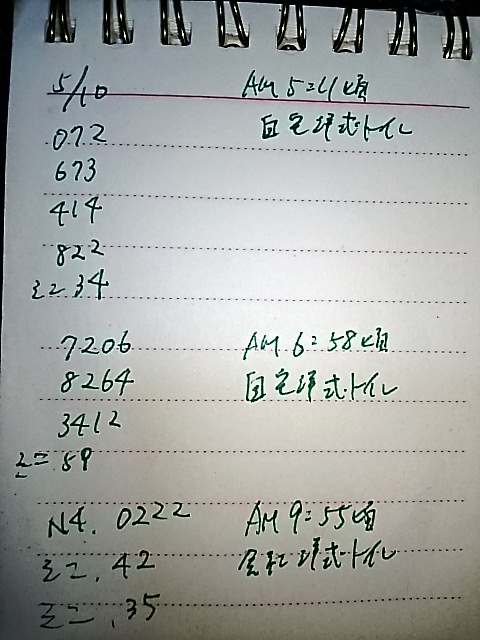 5/10 AM 5:11頃
072 自宅洋式トイレ
673
414
822
ミニ 34
7206 AM 6:58頃
8264 自宅洋式トイレ
3412
ミニ 59
N4. 0222 AM 9:55頃
ミニ. 42 洋式トイレ
ミニ. 35